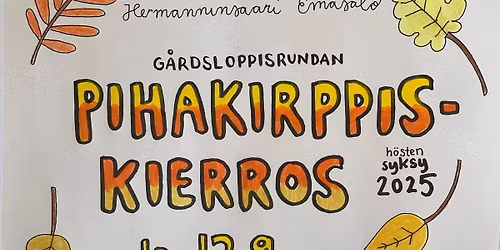 Hermanninsaari Emäsalo
GÅRDSLOPPISRUNDAN
PIHAKIRPPIS-
KIERROS
hösten
syksy
2025